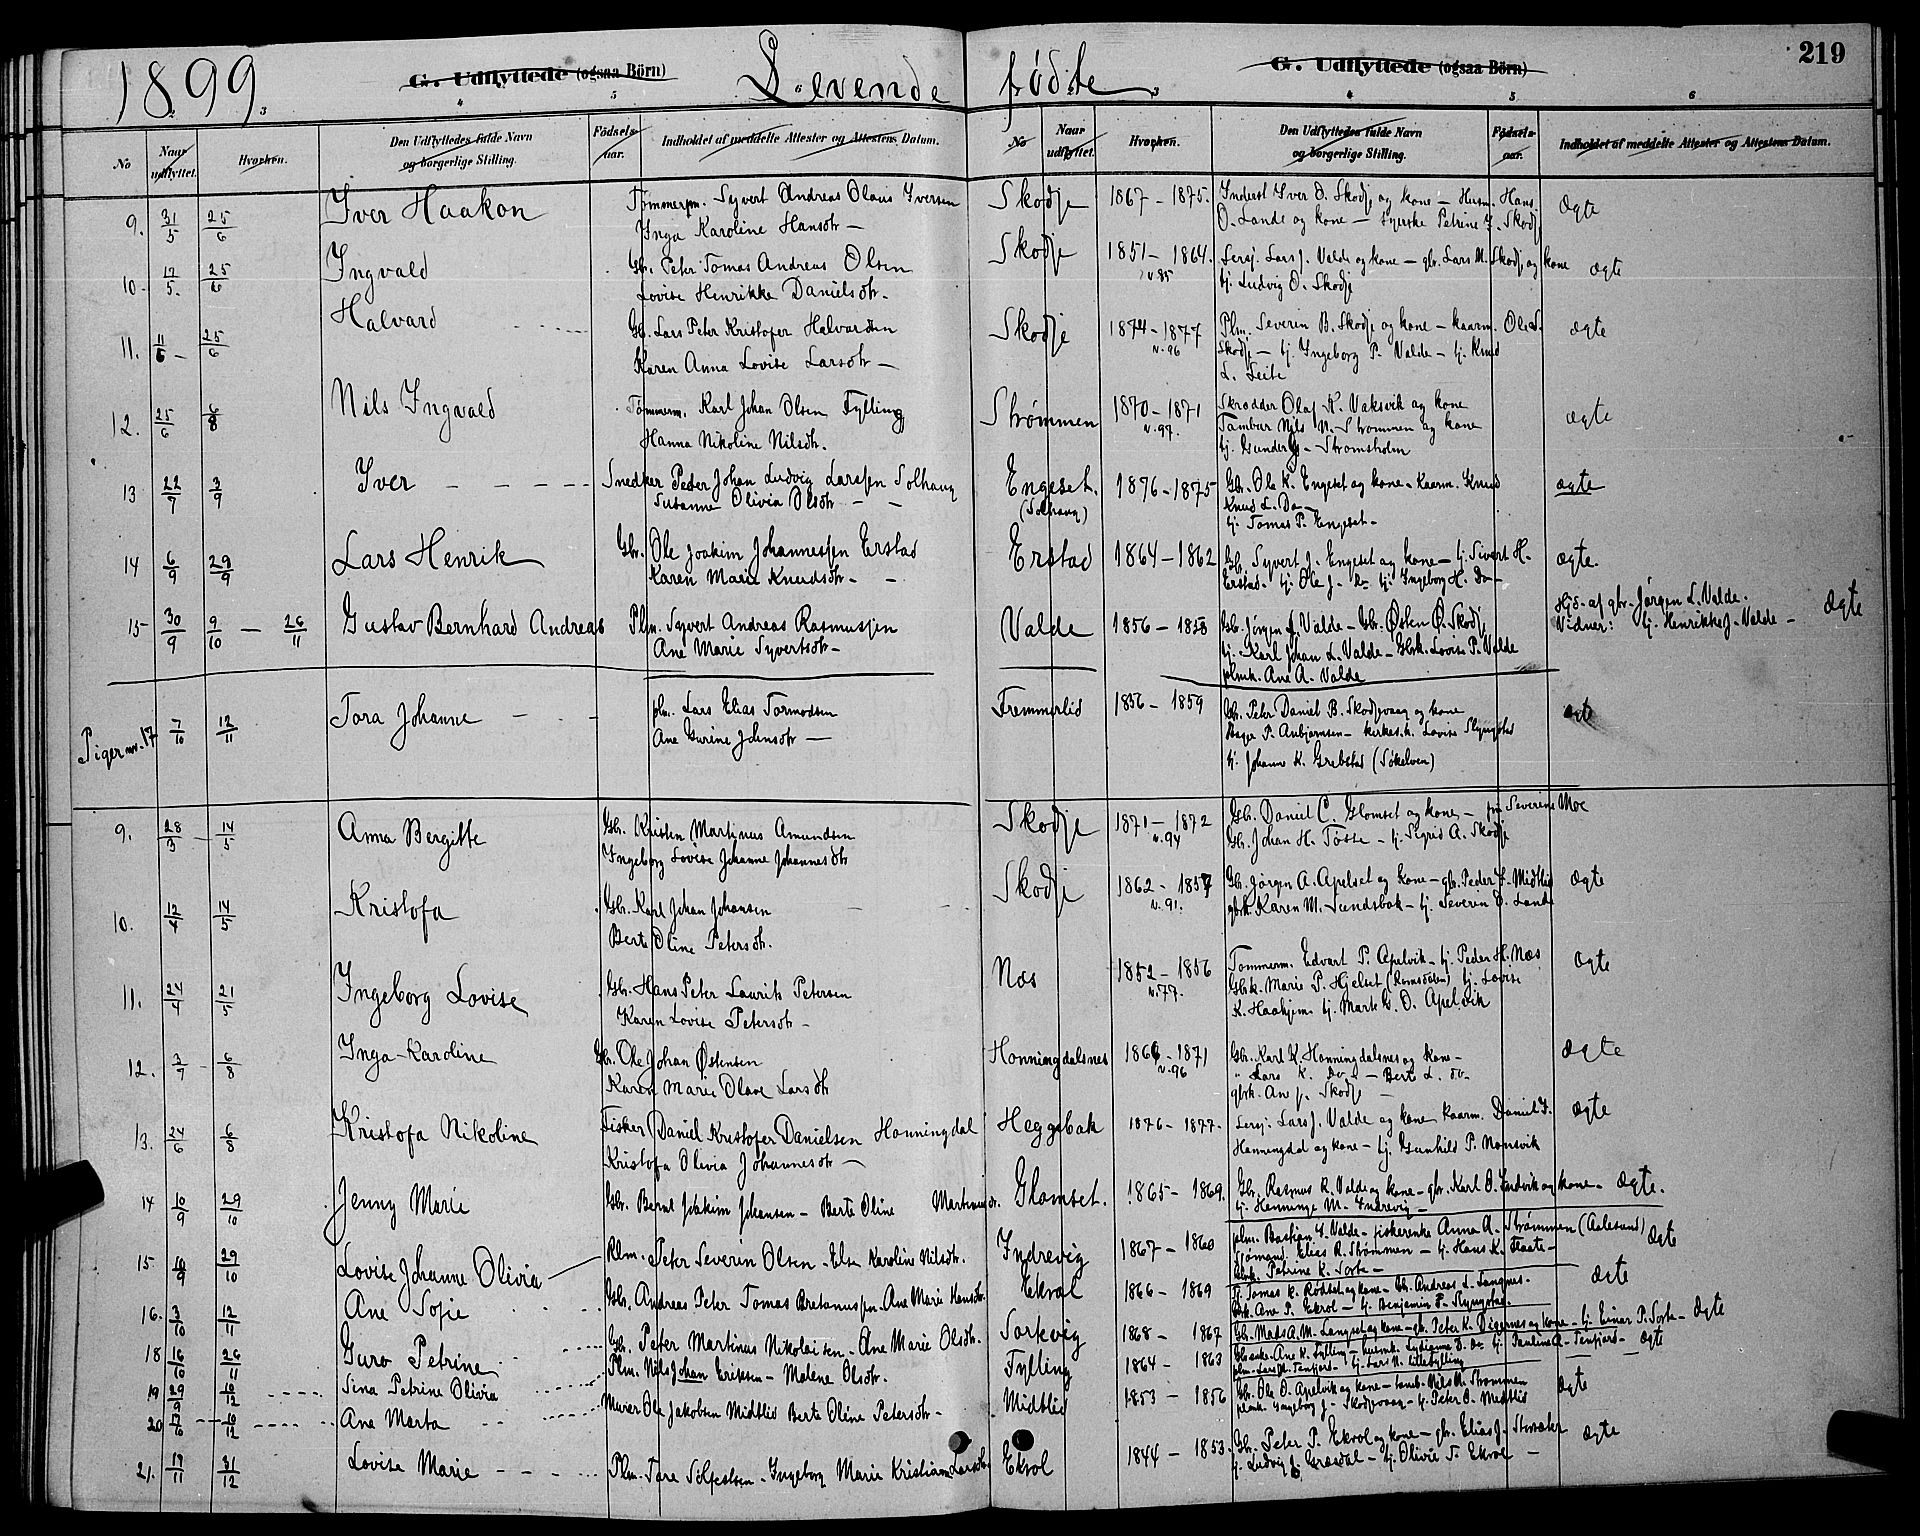 1899
G. Udflyttede (ogsaa Börn)
Levende fødte
G. Udflyttede (ogsaa Börn)
219
No
Naar udflyttet.
Hvorhen.
Den Udflyttedes fulde Navn og borgerlige Stilling.
Fødsels-aar.
Indholdet af meddelte Attester og Attestens Datum.
No
Naar udflyttet.
Hvorhen.
Den Udflyttedes fulde Navn og borgerlige Stilling.
Fødsels-aar.
Indholdet af meddelte Attester og Attestens Datum.
9. 31/5 25/6 Iver Haakon Tømmerm. Syvert Andreas Olaus Iversen Skodje 1867 - 1875. Inderst Iver O. Skodj og kone - Husm. Hans
Inga Karoline Hansdtr - O. Lande og kone - Syerske Petrine I. Skodj Ægte
10. 17/5. 25/6 Ingvald Gbr. Peter Tomas Andreas Olsen Skodje 1851 - 1864. Sersj. Lars J. Valde og kone - gbr. Lars M. Skodj og kone Ægte
Lovise Henrikke Danielsdtr. N.85 Lj. Ludvig O. Skodj
11. 11/6 25/6 Halvard Gb. Lars Peter Kristofer Halvardsen Skodje 1874 - 1877 Plm. Severin B. Skodje og kone - kaarm. Ole L. Ægte
Karen Anna Lovise Larsdtr - N.96 Skodje - Lj. Ingeborg P. Valde - Lj. Knud
L. Leite
12. 25/6 6/8 Nils Ingvald Tømmerm. Karl Johan Olsen Fylling Strømmen 1870 - 1871 Skrædder Olaf K. Vaksvik og kone Ægte
Hanna Nikoline Nilsdtr. N.97. Tambur Nils N. Strømmen og kone
Lj. Gunder - Strømsholm
13 22/7 3/9 Iver Snedker Peder Johan Ludvig Larssen Solhaug Engeset. 1876 - 1875 Gbr. Ole K. Engeset og kone - Kaarm. Knud Ægte
Susanne Olivia Olsdtr - (Solhaug) Knud L. Do -
Lj. Tomas P. Engeset -
14 6/9 29/9 Lars Henrik Gbr. Ole Joakim Johannessen Erstad Erstad 1864 - 1862 Gb. Syvert J. Engeset og kone - Lj. Sivert H. Ægte.
Karen Marie Knudsdtr - Erstad - Lj. Ole J. Do Lj. Ingeborg H. Do -
15 30/9 9/10 - 26/11 Gustav Bernhard Andreas Plm. Syvert Andreas Rasmussen Valde 1856 - 1858 Gb. Jørgen L. Valde - Gbr. Østen Ø. Skodj Hjd. af gbr. Jørgen L. Valde. Ægte
Ane Marie Syvertsdtr - Lj. Karl Johan L. Valde - Gbrk. Lovise P. Valde Vidner: Lj. Henrikke J. Valde -
plmk. Ane A. Valde
Piger nr. 17 7/10 12/11 Tora Johanne plm. Lars Elias Tormodsen Fremmerlid 1856 - 1859 Gb. Peter Daniel B. Skodjevaag og kone Ægte
Ane Gurine Johnsdtr - Bager P. Anbjørnsen - kirkes.k. Lovise Slyngstad
Lj. Johanne K. Grebstad (Søkelven)
9. 28/3 - 14/5 Anna Bergitte Gb. Kristen Martinus Amundsen Skodje 1871 - 1872 Gb. Daniel C. Glomset og kone - Severine Moe
Ingeborg Lovise Johanne Johannesdtr N.94 Gb. Johan H. Tøsse - Lj. Sigrid A. Skodje
10. 12/4 14/5 Kristofa Gbr. Karl Johan Johansen Skodj 1862 - 1857 Gb. Jørgen A. Apelset og Kone - gbr. Peder I. Midtlid Ægte
Berte Oline Petersdtr. N.91. gbrk. Karen M. Sundsbak - Lj. Severin O. Lande
11. 24/4 21/5 Ingeborg Lovise Gbr. Hans Peter Laurits Petersen Næs 1852 - 1856 Tømmerm. Edvart P. Apelvik - Lj. Peder H. Næs Ægte
Karen Lovise Petersdtr - N.77. Gbrk. Marie P. Hjelset (Romsdalen) Lj. Lovise
K. Haahjem Lj. Marte G. O. Apelvik
12. 3/7 - 6/8 Inga Karoline Gbr. Ole Johan Østensen Honningdalsnes 1866 - 1871 Gbr. Karl K. Honningdalsnes og Kone - Ægte
Karen Marie Olave Larsdtr N.96 " Lars K. Do - Berte L. do -
gbrk. Ane J. Skodje -
13. 24/6 6/8 Kristofa Nikoline Fisker Daniel Kristofer Danielsen Honningdal Heggebak 1876 - 1877. Sersj. Lars J. Valde og kone kaarm. Daniel I. Ægte
Kristofa Olivia Johannesdtr - Honningdal og kone - Lj. Gunhild P. Nonsvik
14 10/9 29/10 Jenny Marie Gbr. Bernt Joakim Johansen - Berte Oline Martinusdtr. Glomset. 1865 - 1869. Gb. Rasmus R. Valde og kone - gbr. Karl O. Indvik og kone - Ægte.
Lj. Henninge M. Indrevig -
15 10/9 29/10 Lovise Johanne Olivia Plm. Peter Severin Olsen - Else Karoline Nilsdtr. Indrevig 1867 - 1860 plm. Bastian L. Valde - fiskerenke Anna A. Strømmen (Aalesund) Ægte
Sjømand Elias R. Strømmen - Lj. Hans K. Flaate -
Gbrk. Petrine K. Sorte -
16. 3/10 12/11 Ane Sofie Gbr. Andreas Peter Tomas Bretanussen - Ane Marie Hansdtr. Ekrol 1866 - 1869 Lj. Tomas K. Rødset og kone - Gb. Andreas L. Langnes. Ægte
Gbrk. Ane P. Ekrol - Lj. Benjamin P. Slyngstad.
18 16/10 26/11 Guro Petrine Gb. Peter Martinus Nikolaisen - Ane Marie Olsdtr. Sortevig 1868 - 1867 Gb. Mads A. M. Langset og kone - gb. Peter K. Digernes og kone - Lj. Einar P. Sorte - Ægte
19 29/9 10/12 Sina Petrine Olivia Plm. Nils Johan Eriksen - Malene Olsdtr. Fylling 1864 - 1863 Ane K. Fylling - Lydianna D. Do Lj. Pauline A. Tenfjord - Ægte
plm. Lars M. Tenfjord - Lj. Lars N. Litlefylling
20 17/10 10/12 Ane Marta Murer Ole Jakobsen Midtlid Berte Oline Petersdtr - Midtlid 1853 - 1856 Gb. Ole O. Apelvik og kone - Nils N. Strømmen Ægte
plmk. Ingeborg J. Skodjevaag - Lj. Peter O. Midtlid
21. 17/11 31/12 Lovise Marie Plm. Tore Sylfestsen - Ingeborg Marie Kristianna Larsdtr Ekrol 1844 - 1853. Gb. Peter P. Ekrol og kone - gbr. Elias J. Ægte
Lj. Ludvig J. Græsdal - Lj. Olivie T. Ekrol -